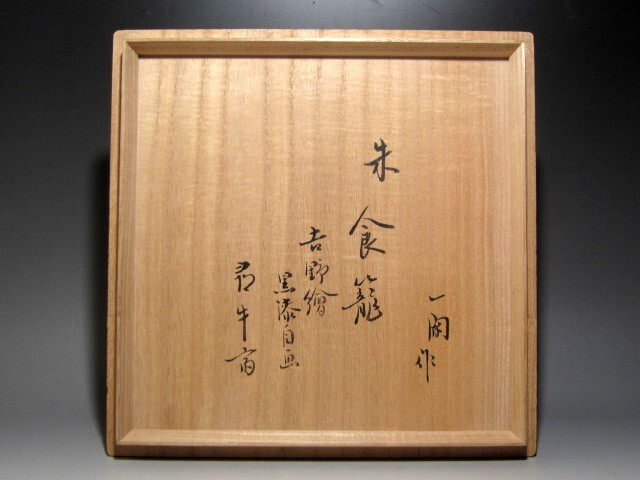 一閑作
朱食籠
吉野繪
黒漆自画
尋牛斎